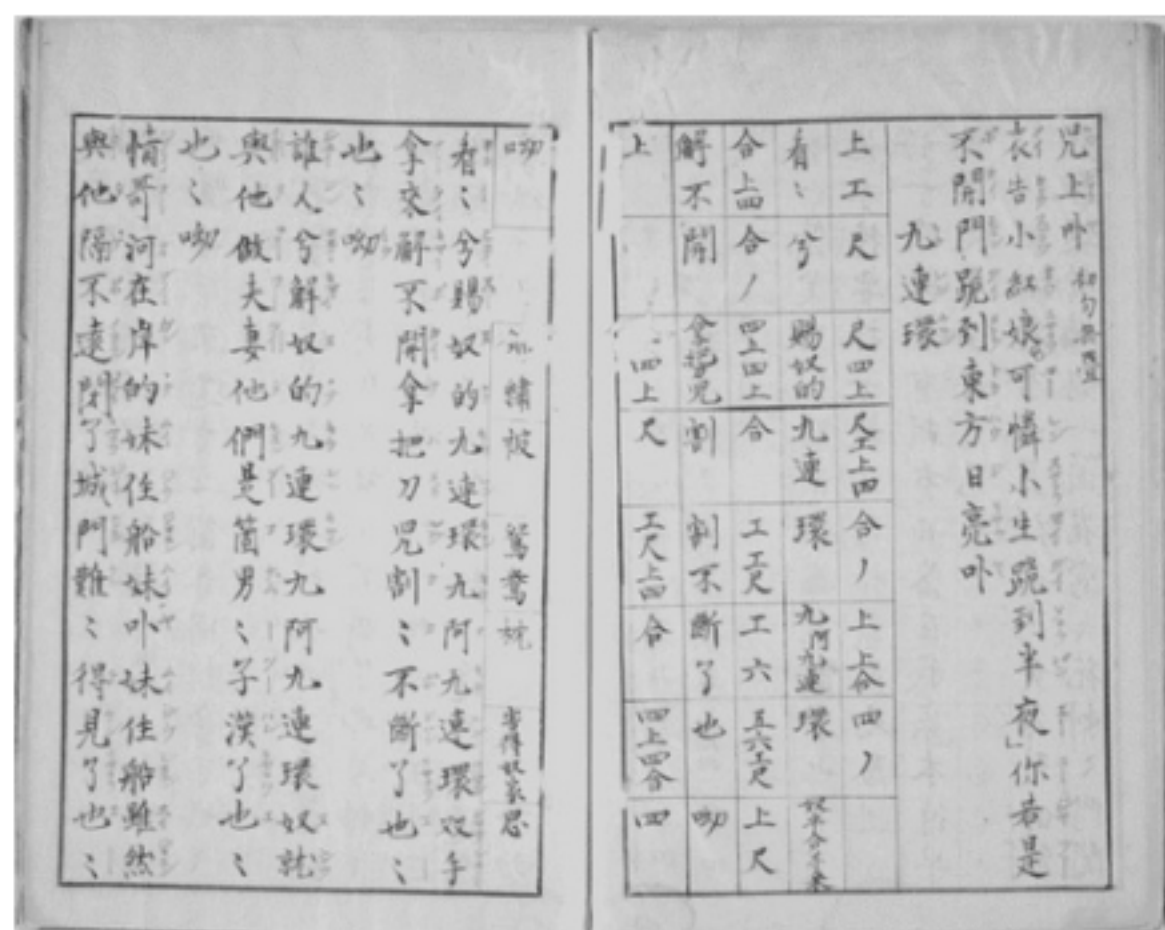 兄上卟 初句無
衣告小紅娘可憐小生跪到半夜」你若是
不開門跪到東方日亮卟
九連環
上工尺 尺四上尺工上四合ノ上上合四ノ
看〻兮 賜奴的九連環九阿九連環
合上四合ノ四上四上合 工工尺工六五六工尺上尺
解不開 拿把兒割 割不斷了也 呦
上 四上尺 工尺上四合四上四合四
呦 繡被 鴛鴦枕 恩
看〻兮賜奴的九連環九阿九連環双手
拿來解不開拿把刀兒割〻不斷了也〻
也〻呦
誰人兮解奴的九連環九阿九連環奴就
與他做夫妻他們是箇男〻子漢了也〻
也〻呦
情哥河在岸的妹住船妹卟妹住船雖然
與他隔不遠閉了城門難〻得見了也〻